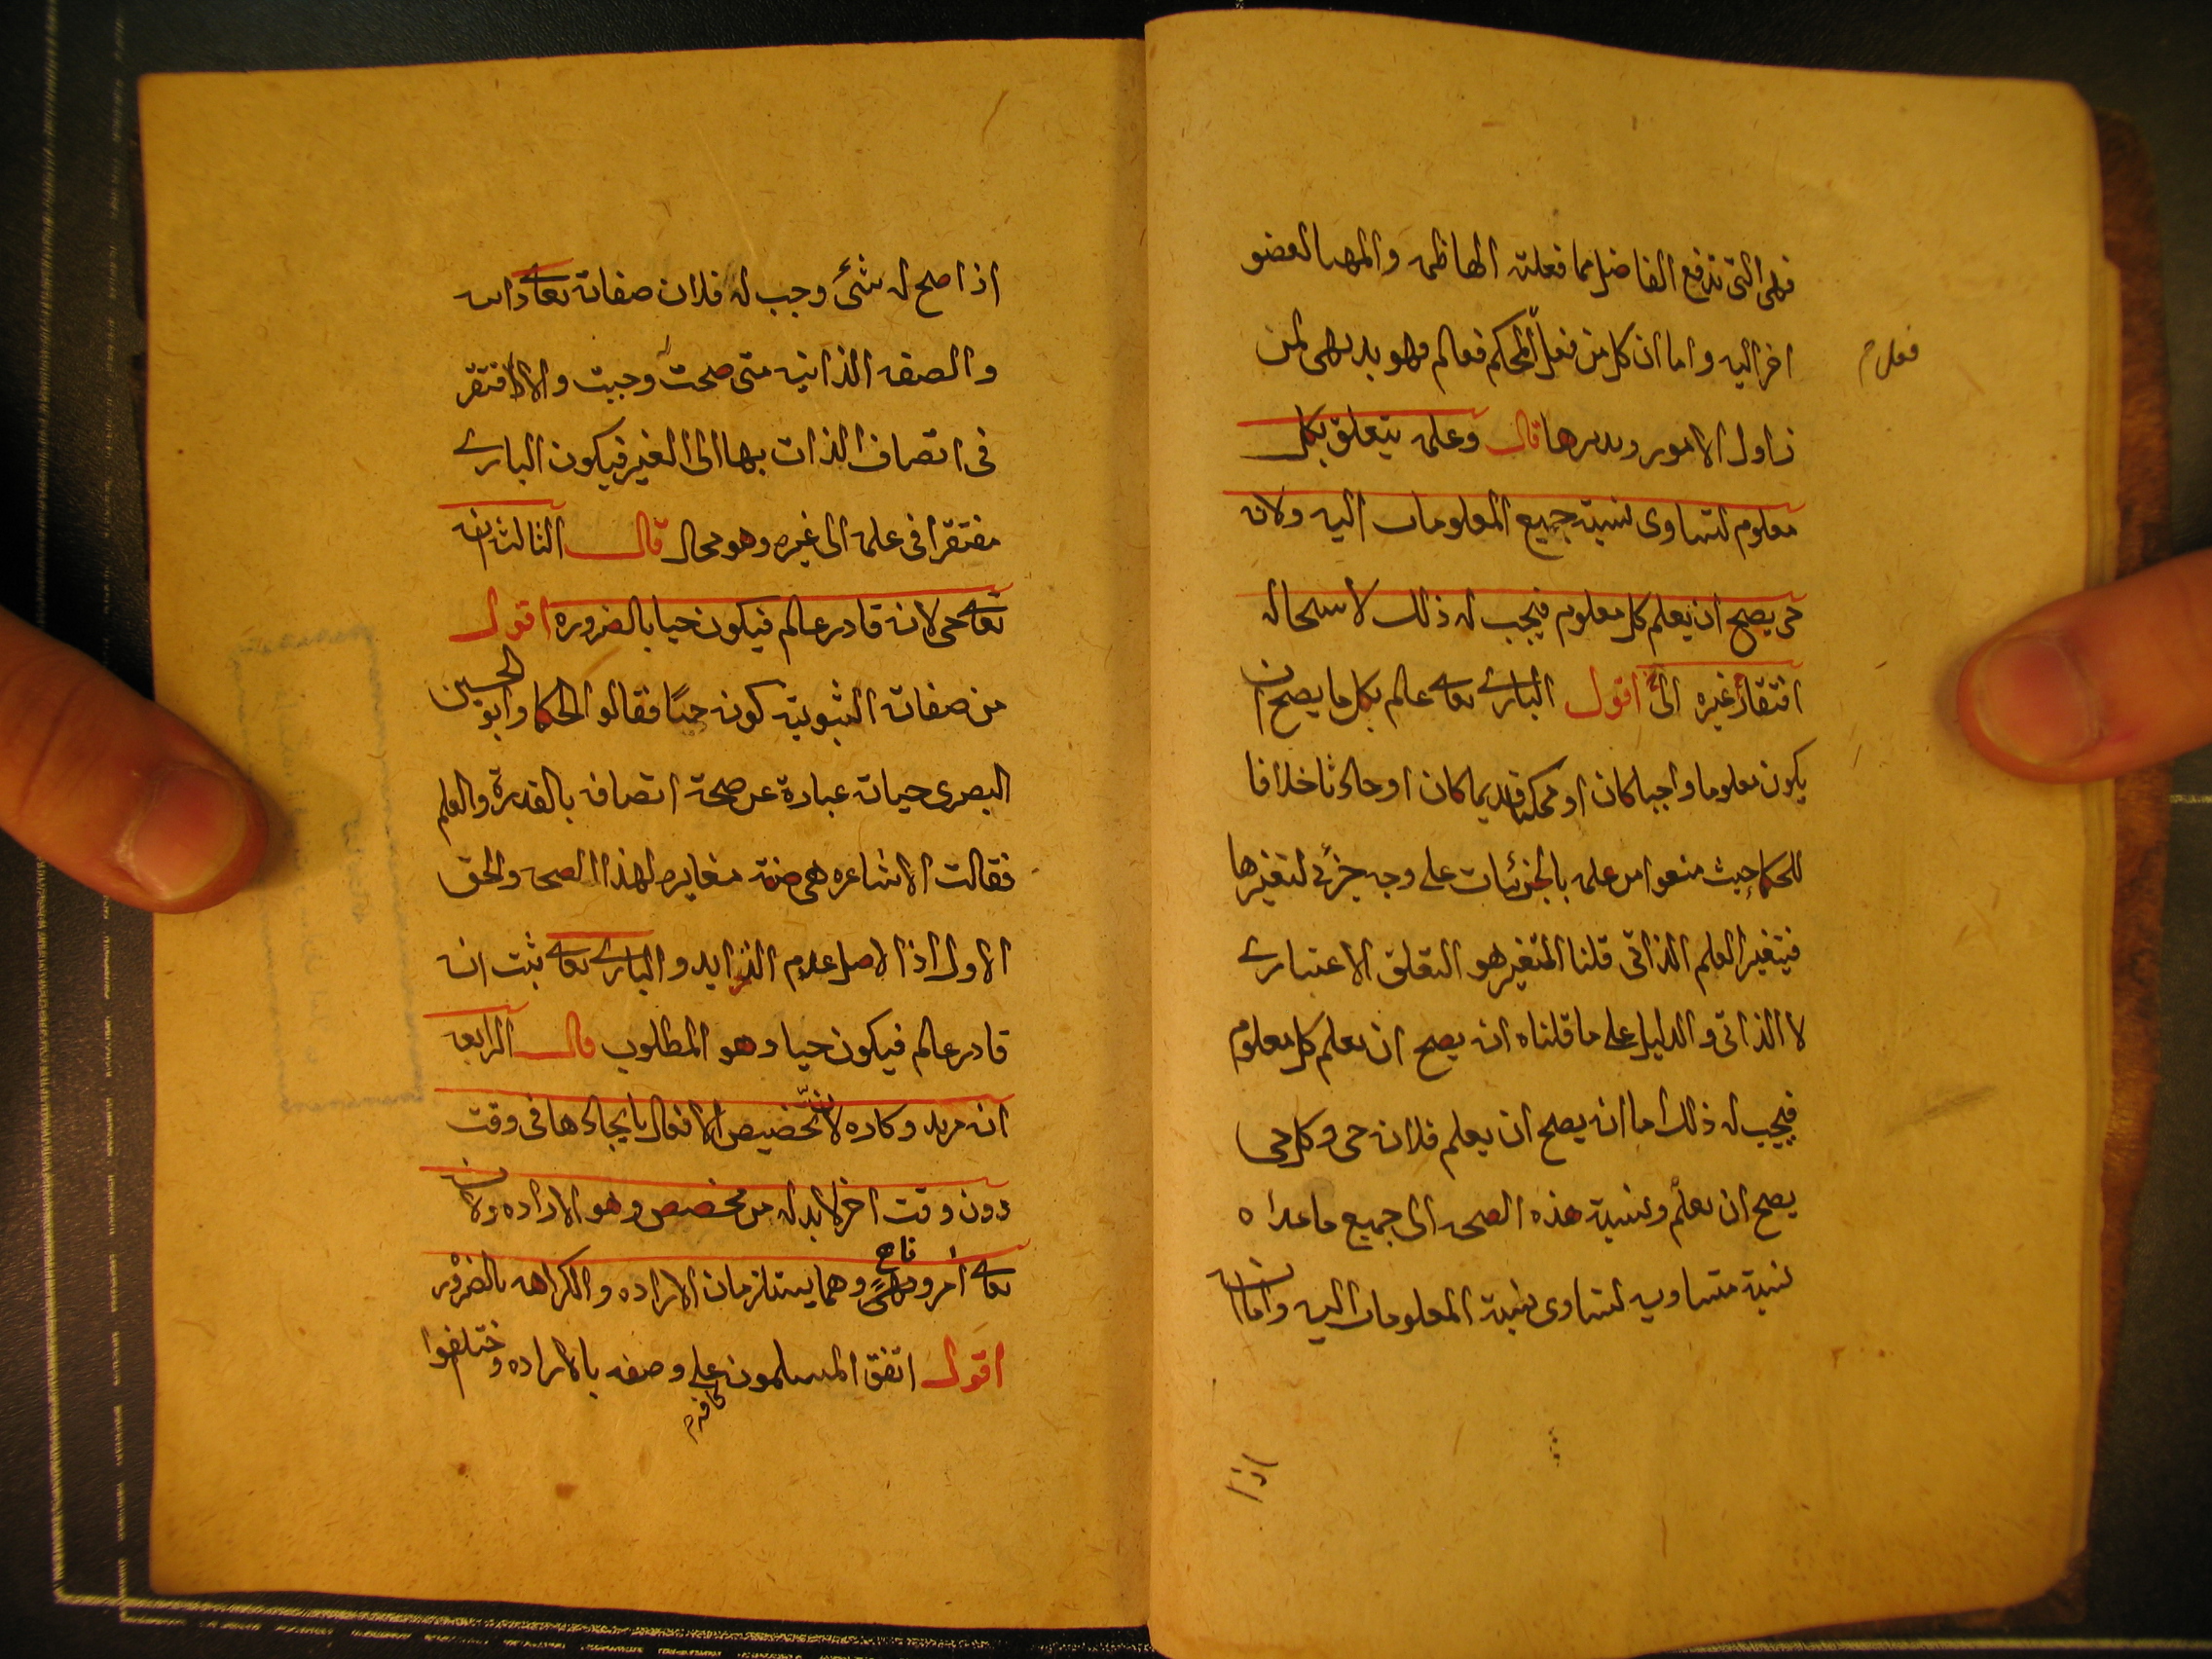 فهى التى تدفع الفاضل مما فعلته الهاظمه والمهيا لعضو
اخر اليه واما ان كل من فعل المحكم فعالم فهو بديهى لمن
زاول الامور وتدبرها قال وعلمه يتعلق بكل
معلوم لتساوى نسبة جميع المعلومات اليه ولانه
حى يصح ان يعلم كل معلوم فيجب له ذلك لاستحاله
افتقاره الى غيره اقول البارى تعالى عالم بكل ما يصح ان
يكون معلوما واجبا كان او ممكنا قديما كان او حادثا خلافا
للحكما حيث منعوا من علمه بالجزئيات على وجه جزئى لتغيرها
فيتغير العلم الذاتى قلنا المتغير هو التعلق الاعتبارى
لا الذاتى والدليل على ما قلناه انه يصح ان يعلم كل معلوم
فيجب له ذلك اما انه يصح ان يعلم فلانه حى وكل حى
يصح ان يعلم ونسبة هذه الصحه الى جميع ما عداه
نسبة متساويه لتساوى نسبة المعلومات اليه واما انه
اذا
اذا صح له شئ وجب له فلان صفاته تعالى ذاتيه
والصفه الذاتيه متى صحت وجبت والا لافتقر
فى اتصاف الذات بها الى الغير فيكون البارى
مفتقرا فى علمه الى غيره وهو محال قال الثالثه انه
تعالى حى لانه قادر عالم فيكون حيا بالضروره اقول
من صفاته الثبوتية كونه حيًا فقالو الحكما وابو الحسين
البصرى حياته عبارة عن صحة اتصافه بالقدرة والعلم
فقالت الاشاعره هى صفة مغايره لهذا الصحه والحق
الاول اذ الاصل عدم الزايد والبارى تعالى ثبت انه
قادر عالم فيكون حيا وهو المطلوب قال الرابعه
انه مريد وكاره لان تخصيص الافعال بايجادها فى وقت
دون وقت اخر لابد له من مخصص وهو الاراده ولانه
تعالى امر ونهى وهما يستلزمان الاراده والكراهه بالضروره
اقول اتفق المسلمون على وصفه بالاراده واختلفوا